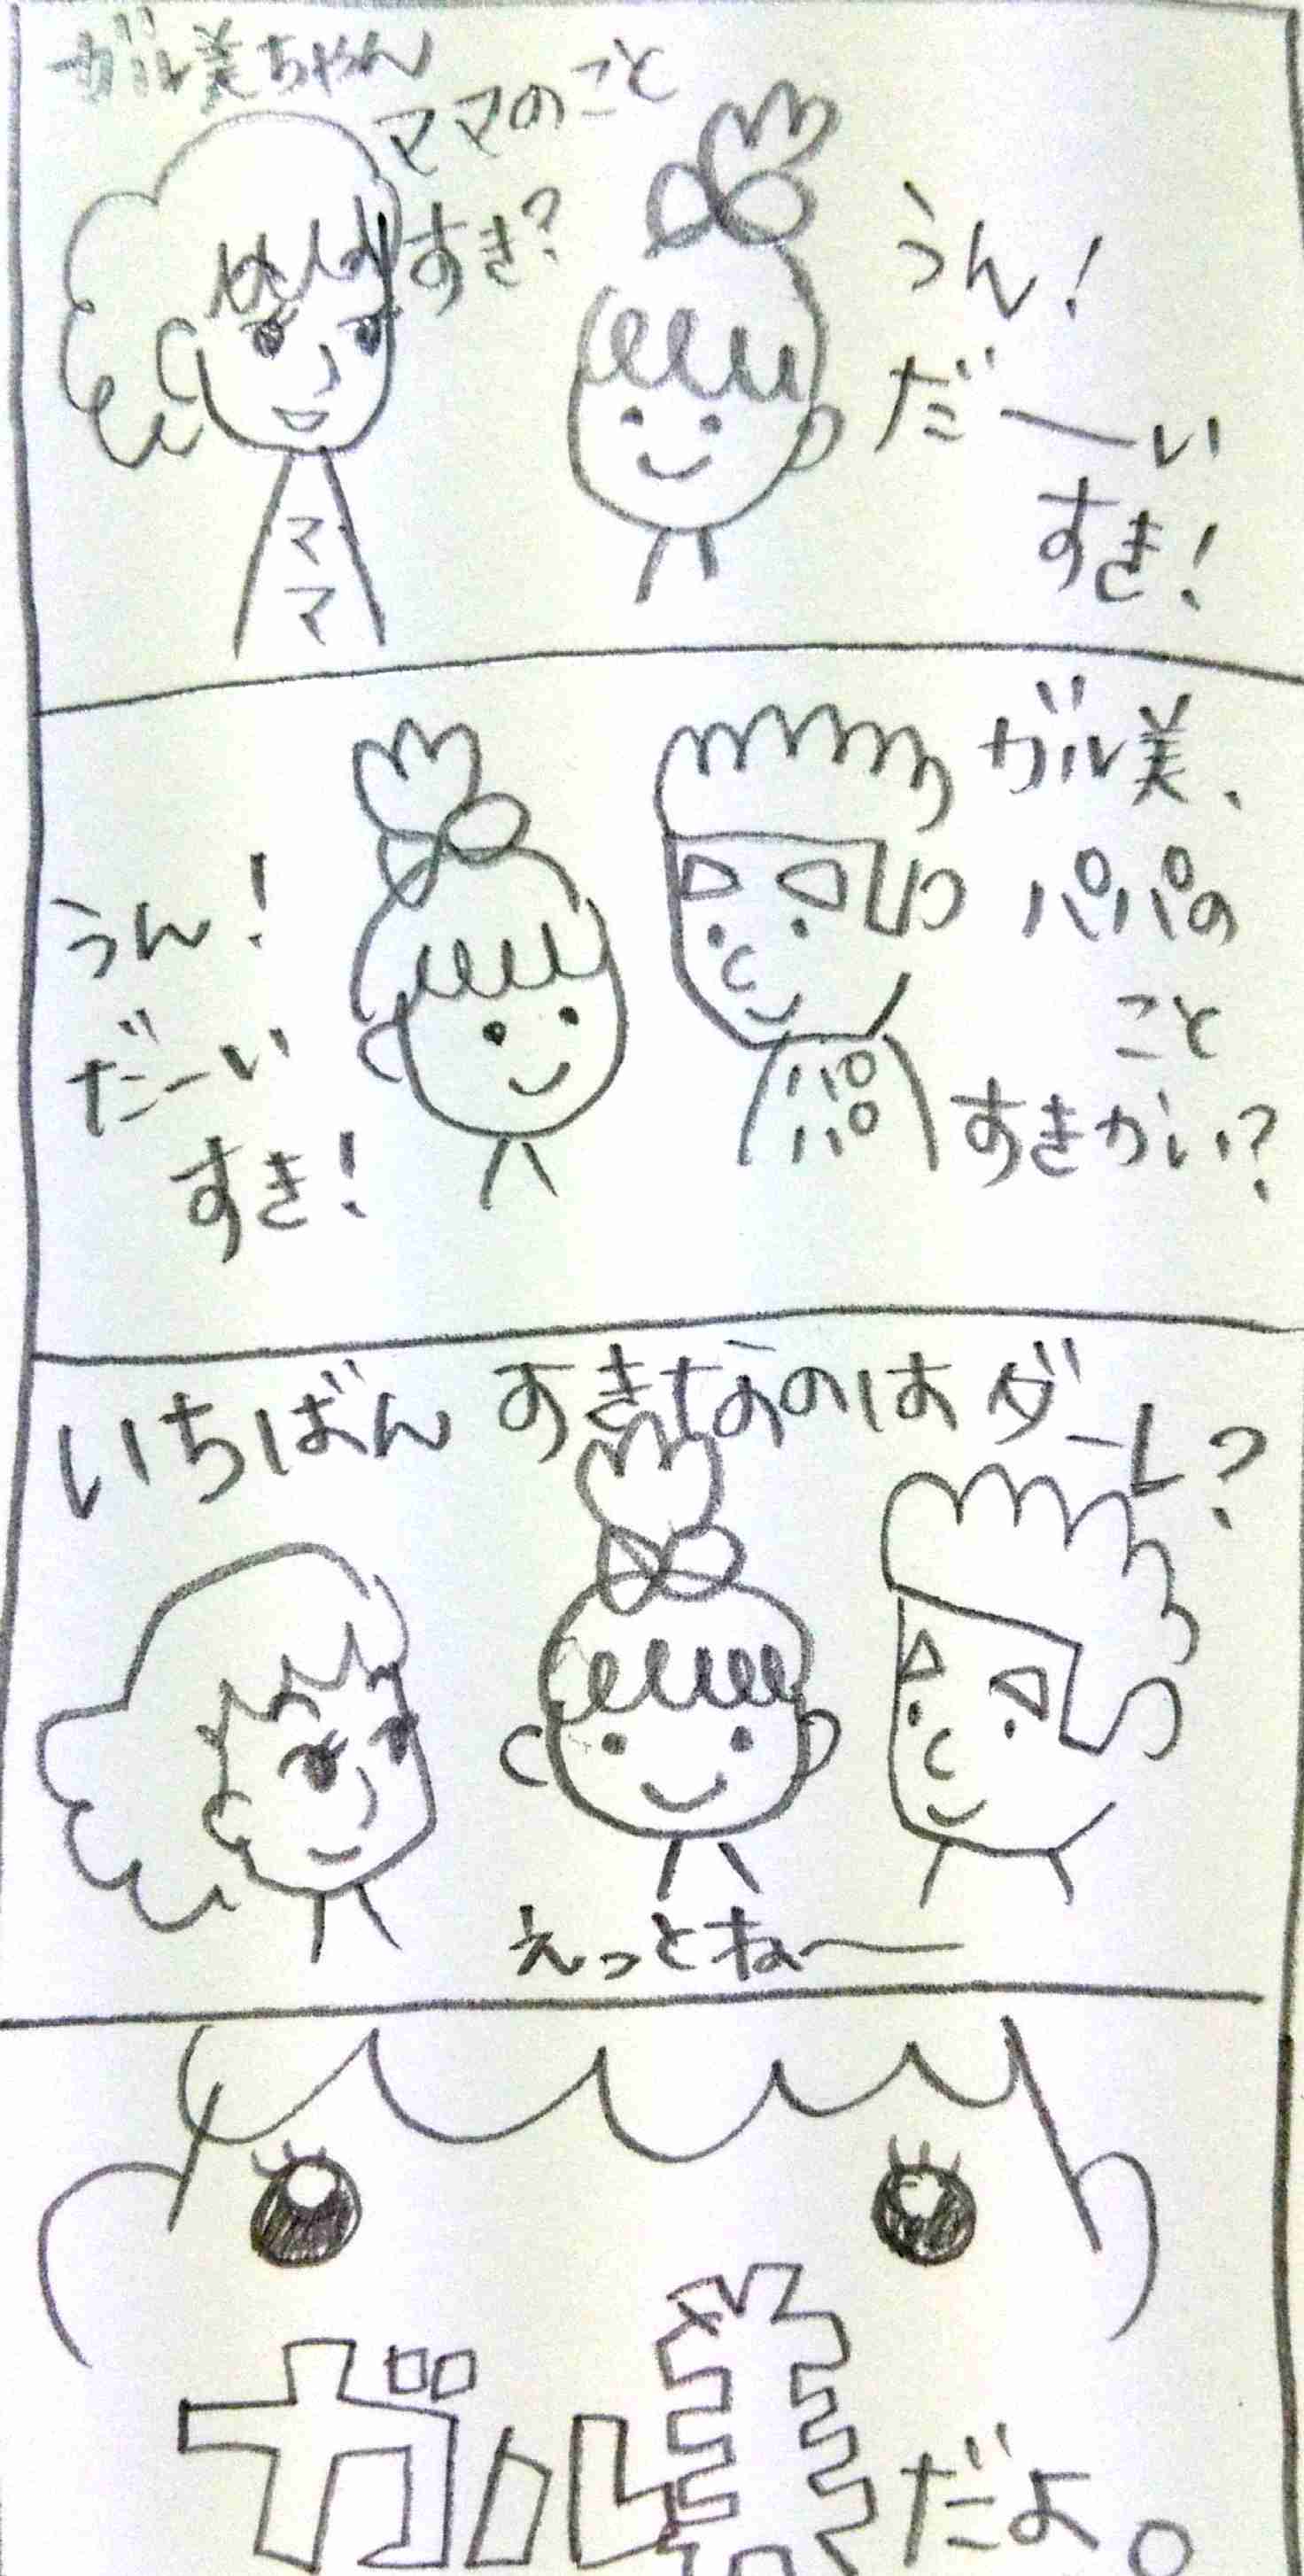 ガル美ちゃん
ママのこと
すき?
うん!
だーい
すき!
ママ
ガル美、
パパの
こと
すきかい?
うん!
だーい
すき!
パパ
いちばん すきなのはダーレ?
えっとねー
ガル美だよ。